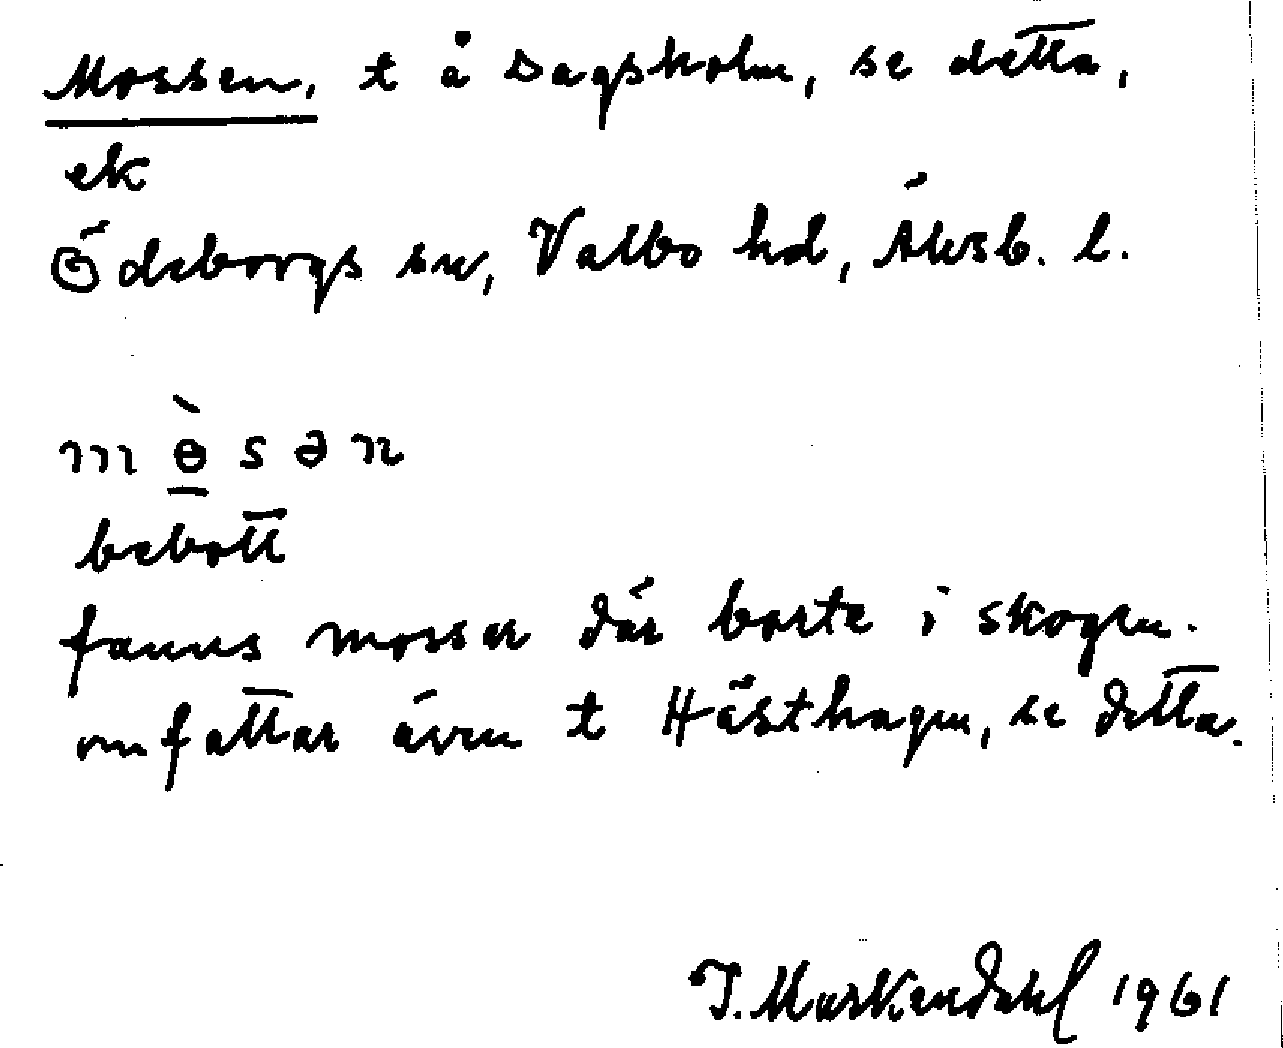 Mossen, t å Dagsholm, se detta,
ek
Ödeborgs sn, Valbo hd, Älvsb. l.
m ѳ̱̀ s ə n
bebott
fanns mossar där borte i skogen.
omfattar även t Hästhagen, se detta.
J. Markendahl 1961